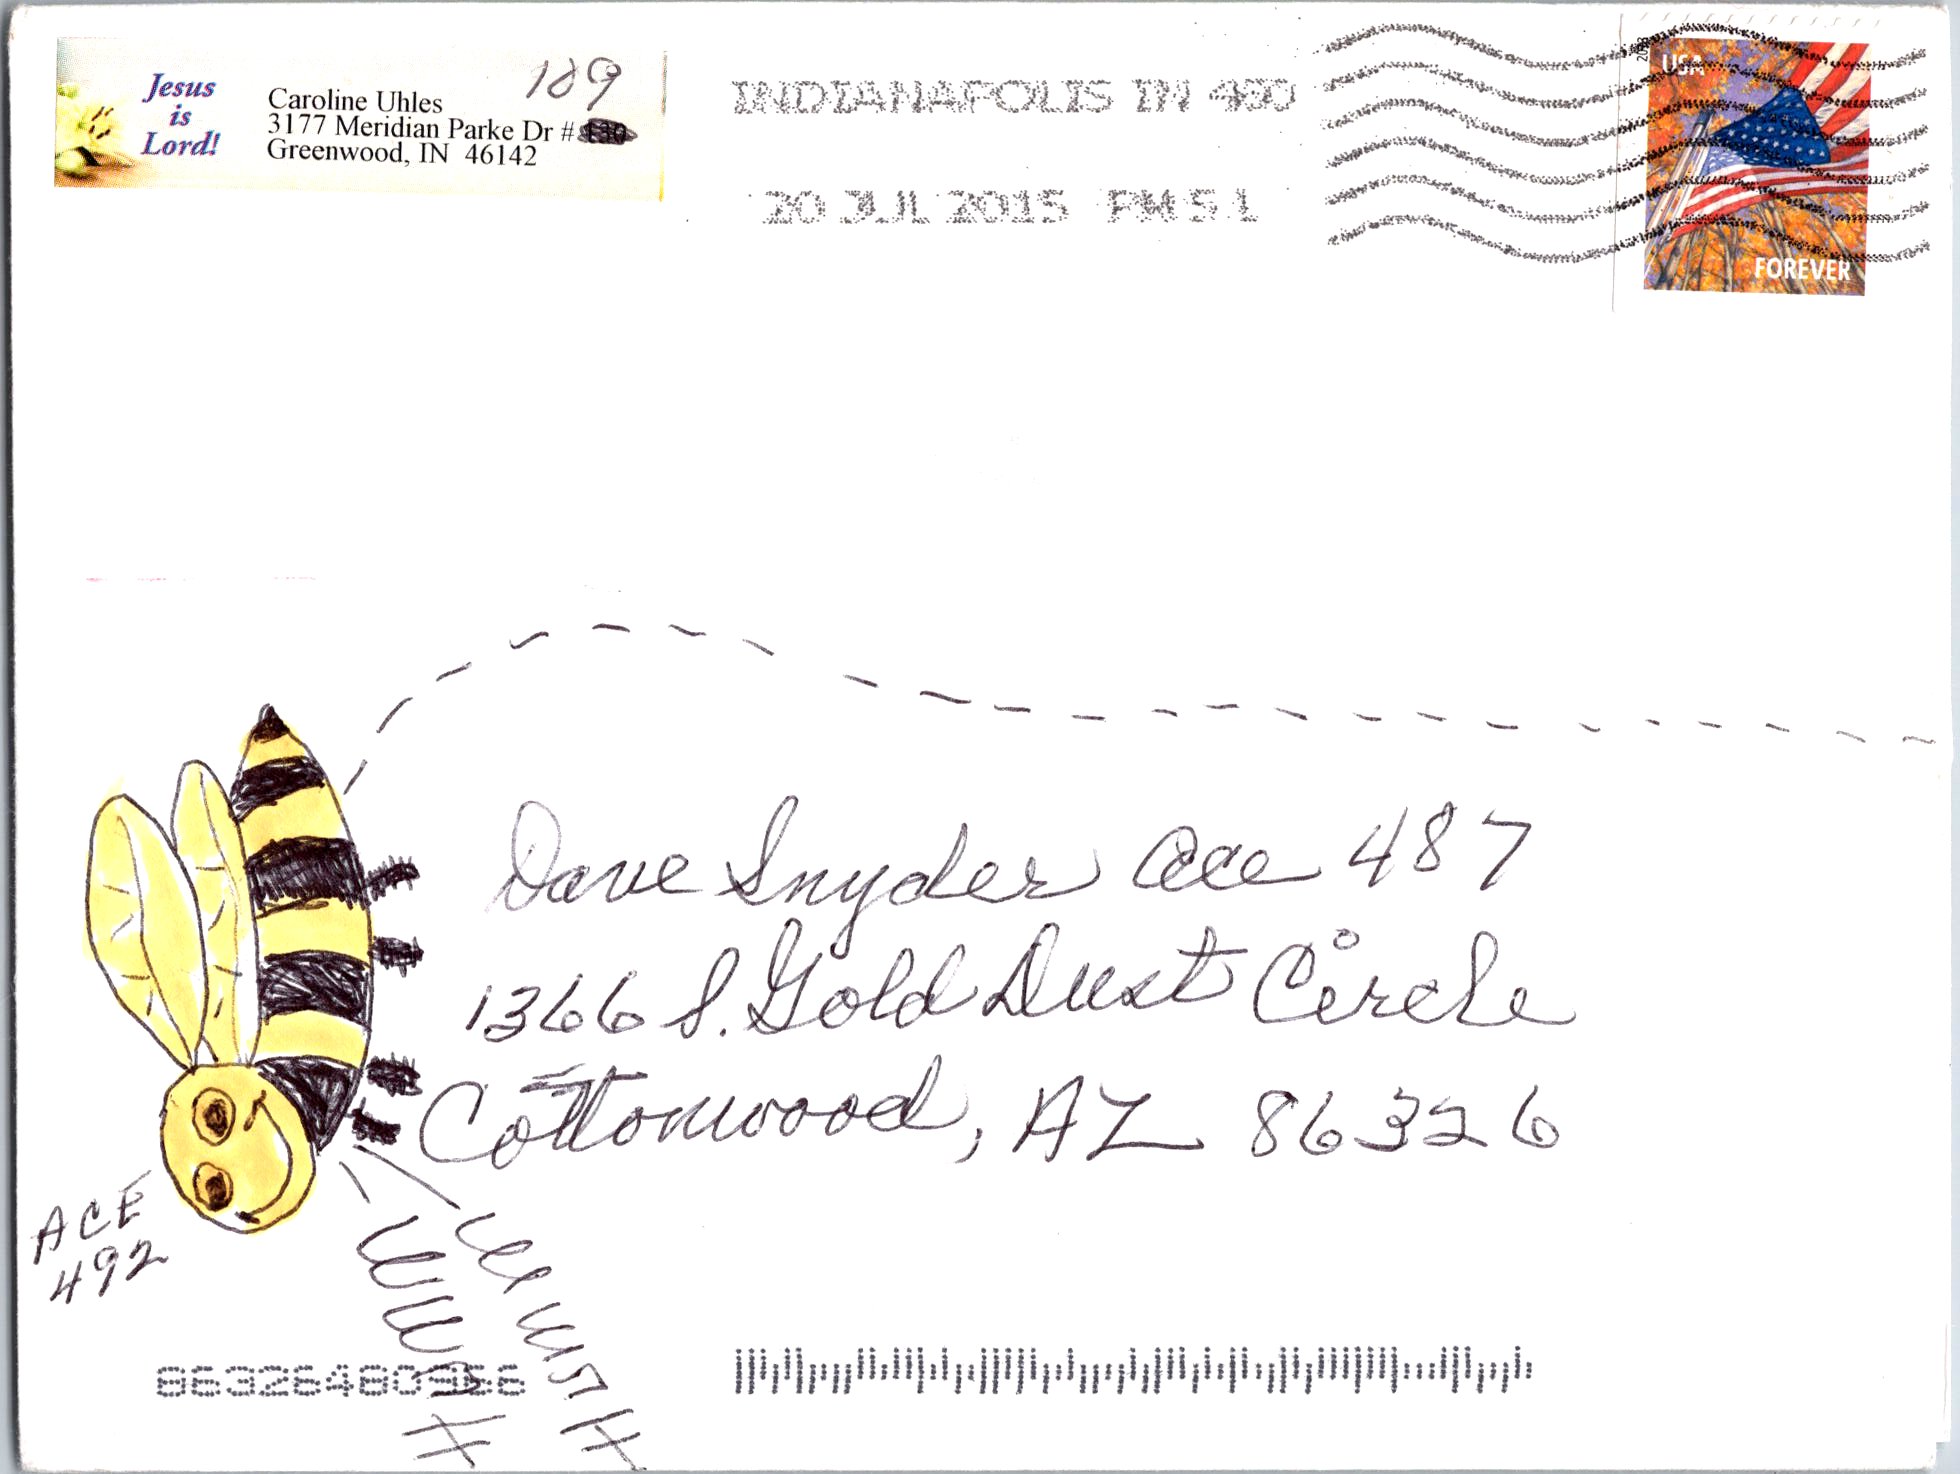 Jesus
is
Lord!
189
Caroline Uhles
3177 Meridian Parke Dr #130
Greenwood, IN 46142
INDIANAPOLIS IN 460
20 JUL 2015 PM 5 L
USA
FOREVER
Dave Snyder Ace 487
1366 S. Gold Dust Circle
Cottonwood, AZ 86326
ACE
492